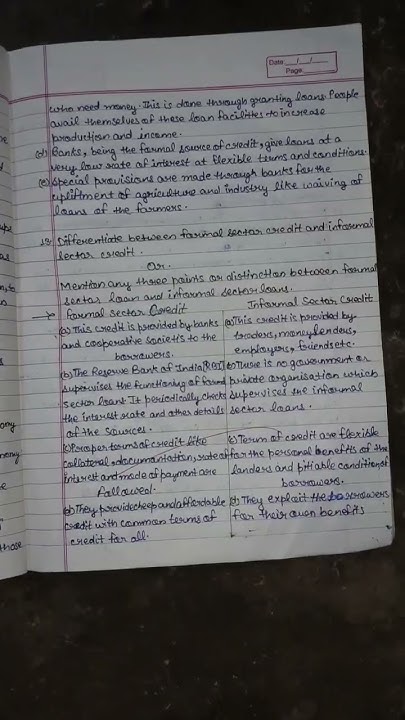 Date ___/___/___
Page ______
who need money. This is done through granting loans. People
avail themselves of these loan facilities to increase
production and income.
(d) Banks, being the formal source of credit, give loans at a
very low rate of interest at flexible terms and conditions.
(e) Special provisions are made through banks for the
upliftment of agriculture and industry like waiving of
loans of the farmers.
Differentiate between formal sector credit and informal
sector credit.
Or
Mention any three points or distinction between formal
sector loan and informal sector loans.
→ formal sector Credit
(a) This credit is provided by banks
and cooperative societies to the
borrowers.
(b) The Reserve Bank of India [RBI]
supervises the functioning of formal
sector loans It periodically checks
the interest rate and other details
of the sources.
(c) Proper terms of credit like
collateral, documentation, rate of
interest and mode of payment are
followed.
(d) They provide cheep and affordable
credit with common terms of
credit for all.
Informal Sector Credit
(a) This credit is provided by
traders, moneylenders,
employers, friends etc.
(b) There is no government or
private organisation which
supervises the informal
sector loans.
(c) Term of credit are flexible
for the personal benefits of the
landers and pitiable condition of
borrowers.
(d) They exploit the borrowers
for their own benefits